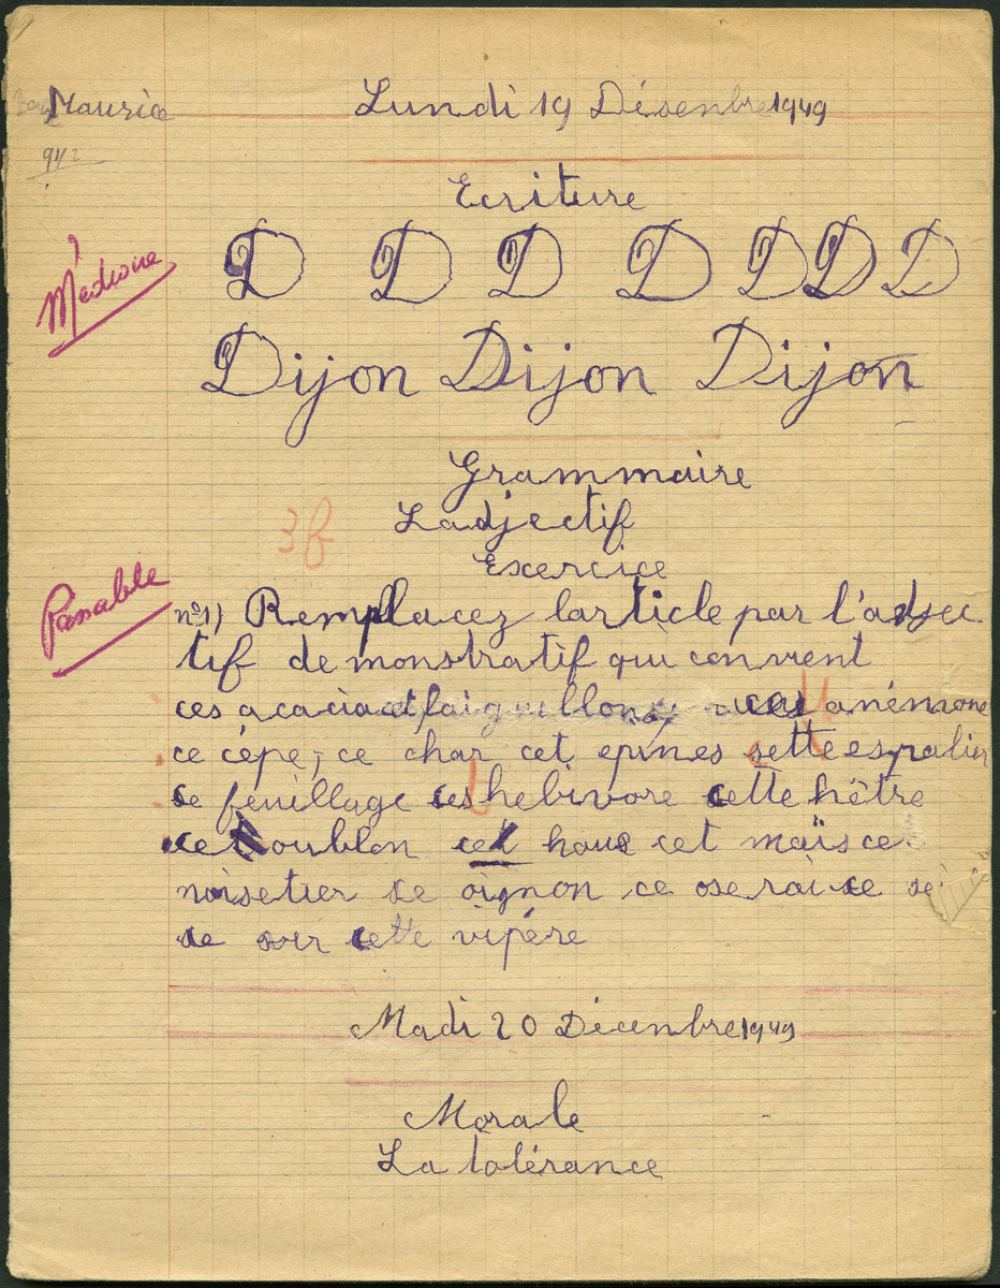 Maurice
Lundi 19 Désenbre 1949
9 1/2
Ecriture
Médiocre
D D D D D D D
Dijon Dijon Dijon
Grammaire
Ladjectif
3f
Exercice
Passable
n°1) Remplacez larticle par l'adjec
tif demonstratif qui convient
ces acacia et faiguillon ces anémone
ce cèpe, ce char cet epines sette espalier
se feuillage ces hebivore cette hêtre
ce houblon cet houe cet maïs ce
noisetier se oignon ce oseraie se
se soir cette vipére
Madi 20 Décenbre 1949
Morale
La tolérance